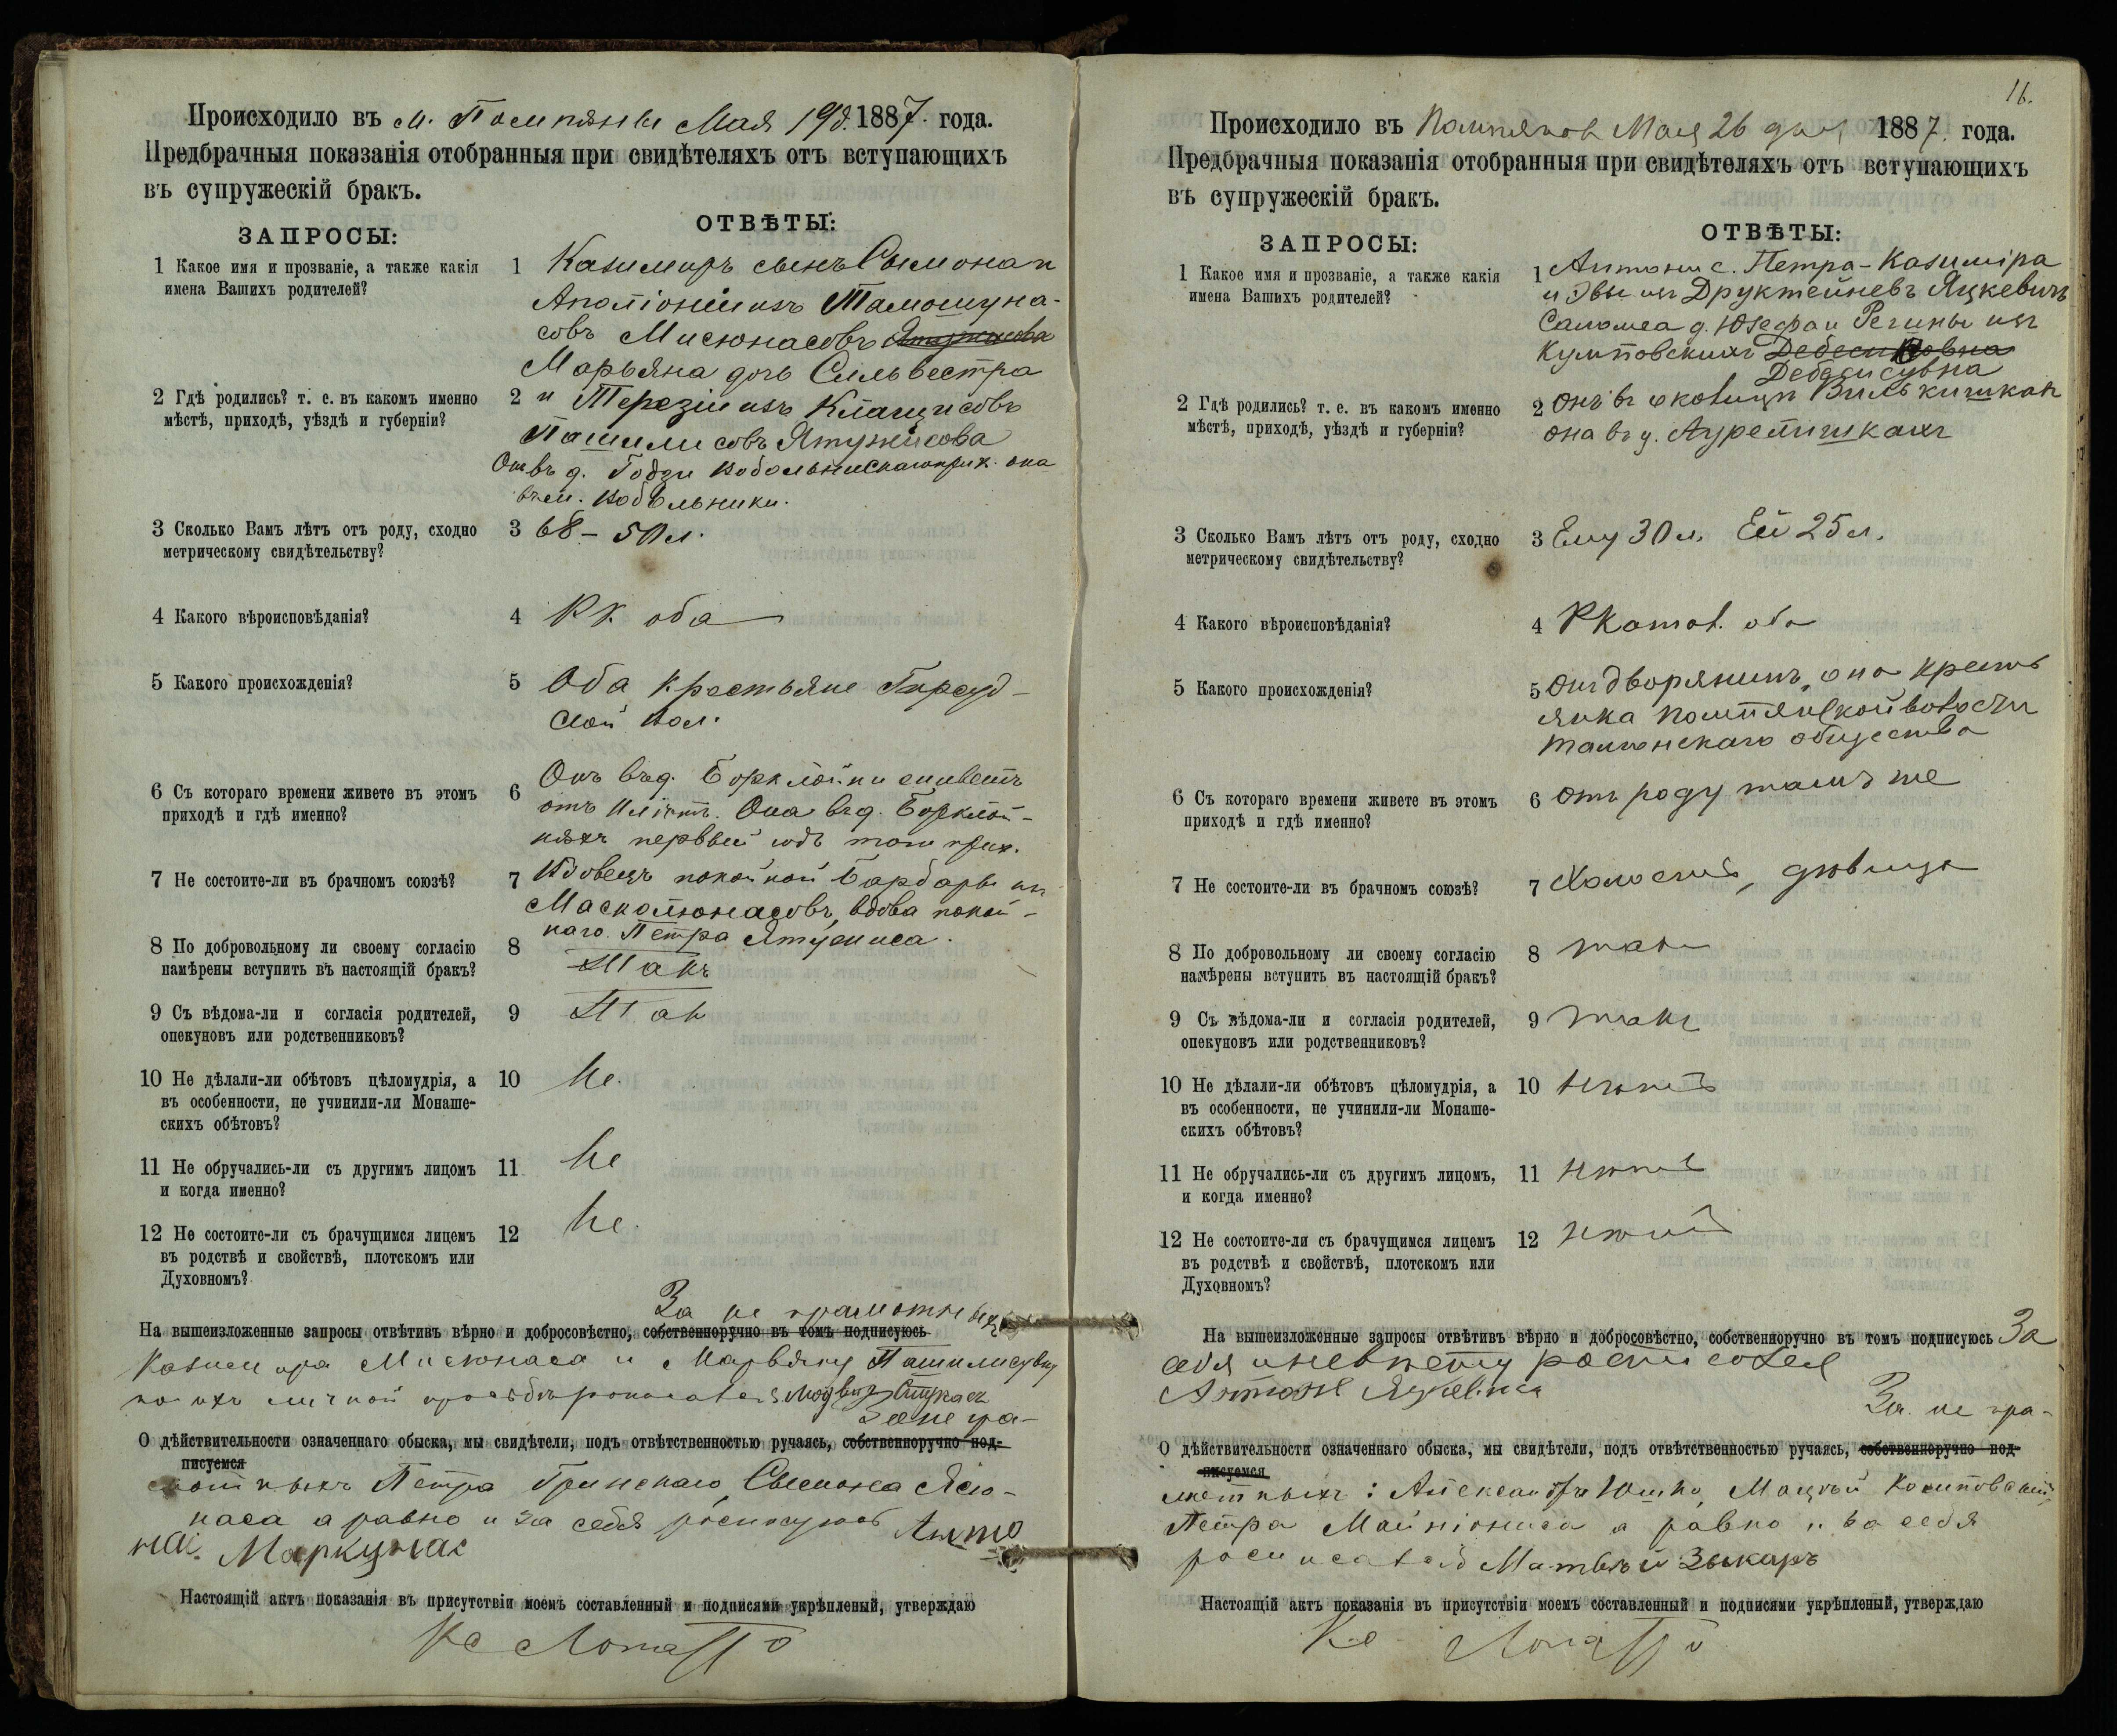 Происходило въ м. Помпяны Мая 19 д. 1887. года.
Предбрачныя показанія отобранныя при свидѣтеляхъ отъ вступающихъ
въ супружескій бракъ.
ЗАПРОСЫ:
ОТВѢТЫ:
1 Какое имя и прозваніе, а также какія
имена Вашихъ родителей?
1 Казимиръ сынъ Сымона и
Аполіоніи изъ Тамошуна-
совъ Мисюнасовъ
Марьяна дочь Сильвестра
2 Гдѣ родились? т. е. въ какомъ именно
мѣстѣ, приходѣ, уѣздѣ и губерніи?
2 и Терезіи изъ
Пашилисовъ Ятужисова
Онъ въ д. она
въ м.
3 Сколько Вамъ лѣтъ отъ роду, сходно
метрическому свидѣтельству?
3 68 – 50 л.
4 Какого вѣроисповѣданія?
4 РК. оба
5 Какого происхожденія?
5 Оба крестьяне
ской вол.
6 Съ котораго времени живете въ этомъ
приходѣ и гдѣ именно?
6 Онъ въ д. живетъ
отъ Она въ д.
первый годъ того прих.
7 Не состоите-ли въ брачномъ союзѣ?
7 Вдовецъ покойной Барбары изъ
вдова покой-
наго Петра Ятужиса.
8 По добровольному ли своему согласію
намѣрены вступить въ настоящій бракъ?
8 Такъ
9 Съ вѣдома-ли и согласія родителей,
опекуновъ или родственниковъ?
9 Такъ
10 Не дѣлали-ли обѣтовъ цѣломудрія, а
въ особенности, не учинили-ли Монаше-
скихъ обѣтовъ?
10 Не.
11 Не обручались-ли съ другимъ лицомъ
и когда именно?
11 Не
12 Не состоите-ли съ брачущимся лицемъ
въ родствѣ и свойствѣ, плотскомъ или
Духовномъ?
12 Не.
За не грамотныхъ
На вышеизложенные запросы отвѣтивъ вѣрно и добросовѣстно, собственноручно въ томъ подписуюсь
Казимира Мисюнаса и Марьяну Пашилисувну
по ихъ личной просьбѣ
За не гра-
О дѣйствительности означеннаго обыска, мы свидѣтели, подъ отвѣтственностью ручаясь, собственноручно под-
писуемся
мотныхъ Петра Гринскаго, Сымона Ясю-
наса а равно и за себя росписуюсь Анто
нас Маркунас
Настоящій актъ показанія въ присутствіи моемъ составленный и подписями укрѣпленый, утверждаю
Кс
16.
Происходило въ Помпянох Мая 26 дня 1887. года.
Предбрачныя показанія отобранныя при свидѣтеляхъ отъ вступающихъ
въ супружескій бракъ.
ЗАПРОСЫ:
ОТВѢТЫ:
1 Какое имя и прозваніе, а также какія
имена Вашихъ родителей?
1 Антони с. Петра-Казиміра
и Эвы изъ Друктейневъ Яцкевичъ
Саломеа д. Юзефа и Регины изъ
Кумповскихъ Дебесиковна
Дебесисувна
2 Гдѣ родились? т. е. въ какомъ именно
мѣстѣ, приходѣ, уѣздѣ и губерніи?
2 Онъ въ околицы Вилькишках
она въ у. Аурелишкахъ
3 Сколько Вамъ лѣтъ отъ роду, сходно
метрическому свидѣтельству?
3 Ему 30 л. Ей 25 л.
4 Какого вѣроисповѣданія?
4 РКатол. оба
5 Какого происхожденія?
5 Онъ дворянинъ, она кресть
янка Помпянской волости
общества
6 Съ котораго времени живете въ этомъ
приходѣ и гдѣ именно?
6 Отъ роду тамъ же
7 Не состоите-ли въ брачномъ союзѣ?
7 Холостой, дѣвица
8 По добровольному ли своему согласію
намѣрены вступить въ настоящій бракъ?
8 такъ
9 Съ вѣдома-ли и согласія родителей,
опекуновъ или родственниковъ?
9 такъ
10 Не дѣлали-ли обѣтовъ цѣломудрія, а
въ особенности, не учинили-ли Монаше-
скихъ обѣтовъ?
10
11 Не обручались-ли съ другимъ лицомъ,
и когда именно?
11
12 Не состоите-ли съ брачущимся лицемъ
въ родствѣ и свойствѣ, плотскомъ или
Духовномъ?
12
На вышеизложенные запросы отвѣтивъ вѣрно и добросовѣстно, собственноручно въ томъ подписуюсь За
себя и невѣсту
За не гра-
О дѣйствительности означеннаго обыска, мы свидѣтели, подъ отвѣтственностью ручаясь, собственноручно под-
писуемся
мотныхъ: Александра Юшко,
Петра а равно и за себя
росписался Матвѣй Зыкаръ
Настоящій актъ показанія въ присутствіи моемъ составленный и подписями укрѣпленый, утверждаю
Кс